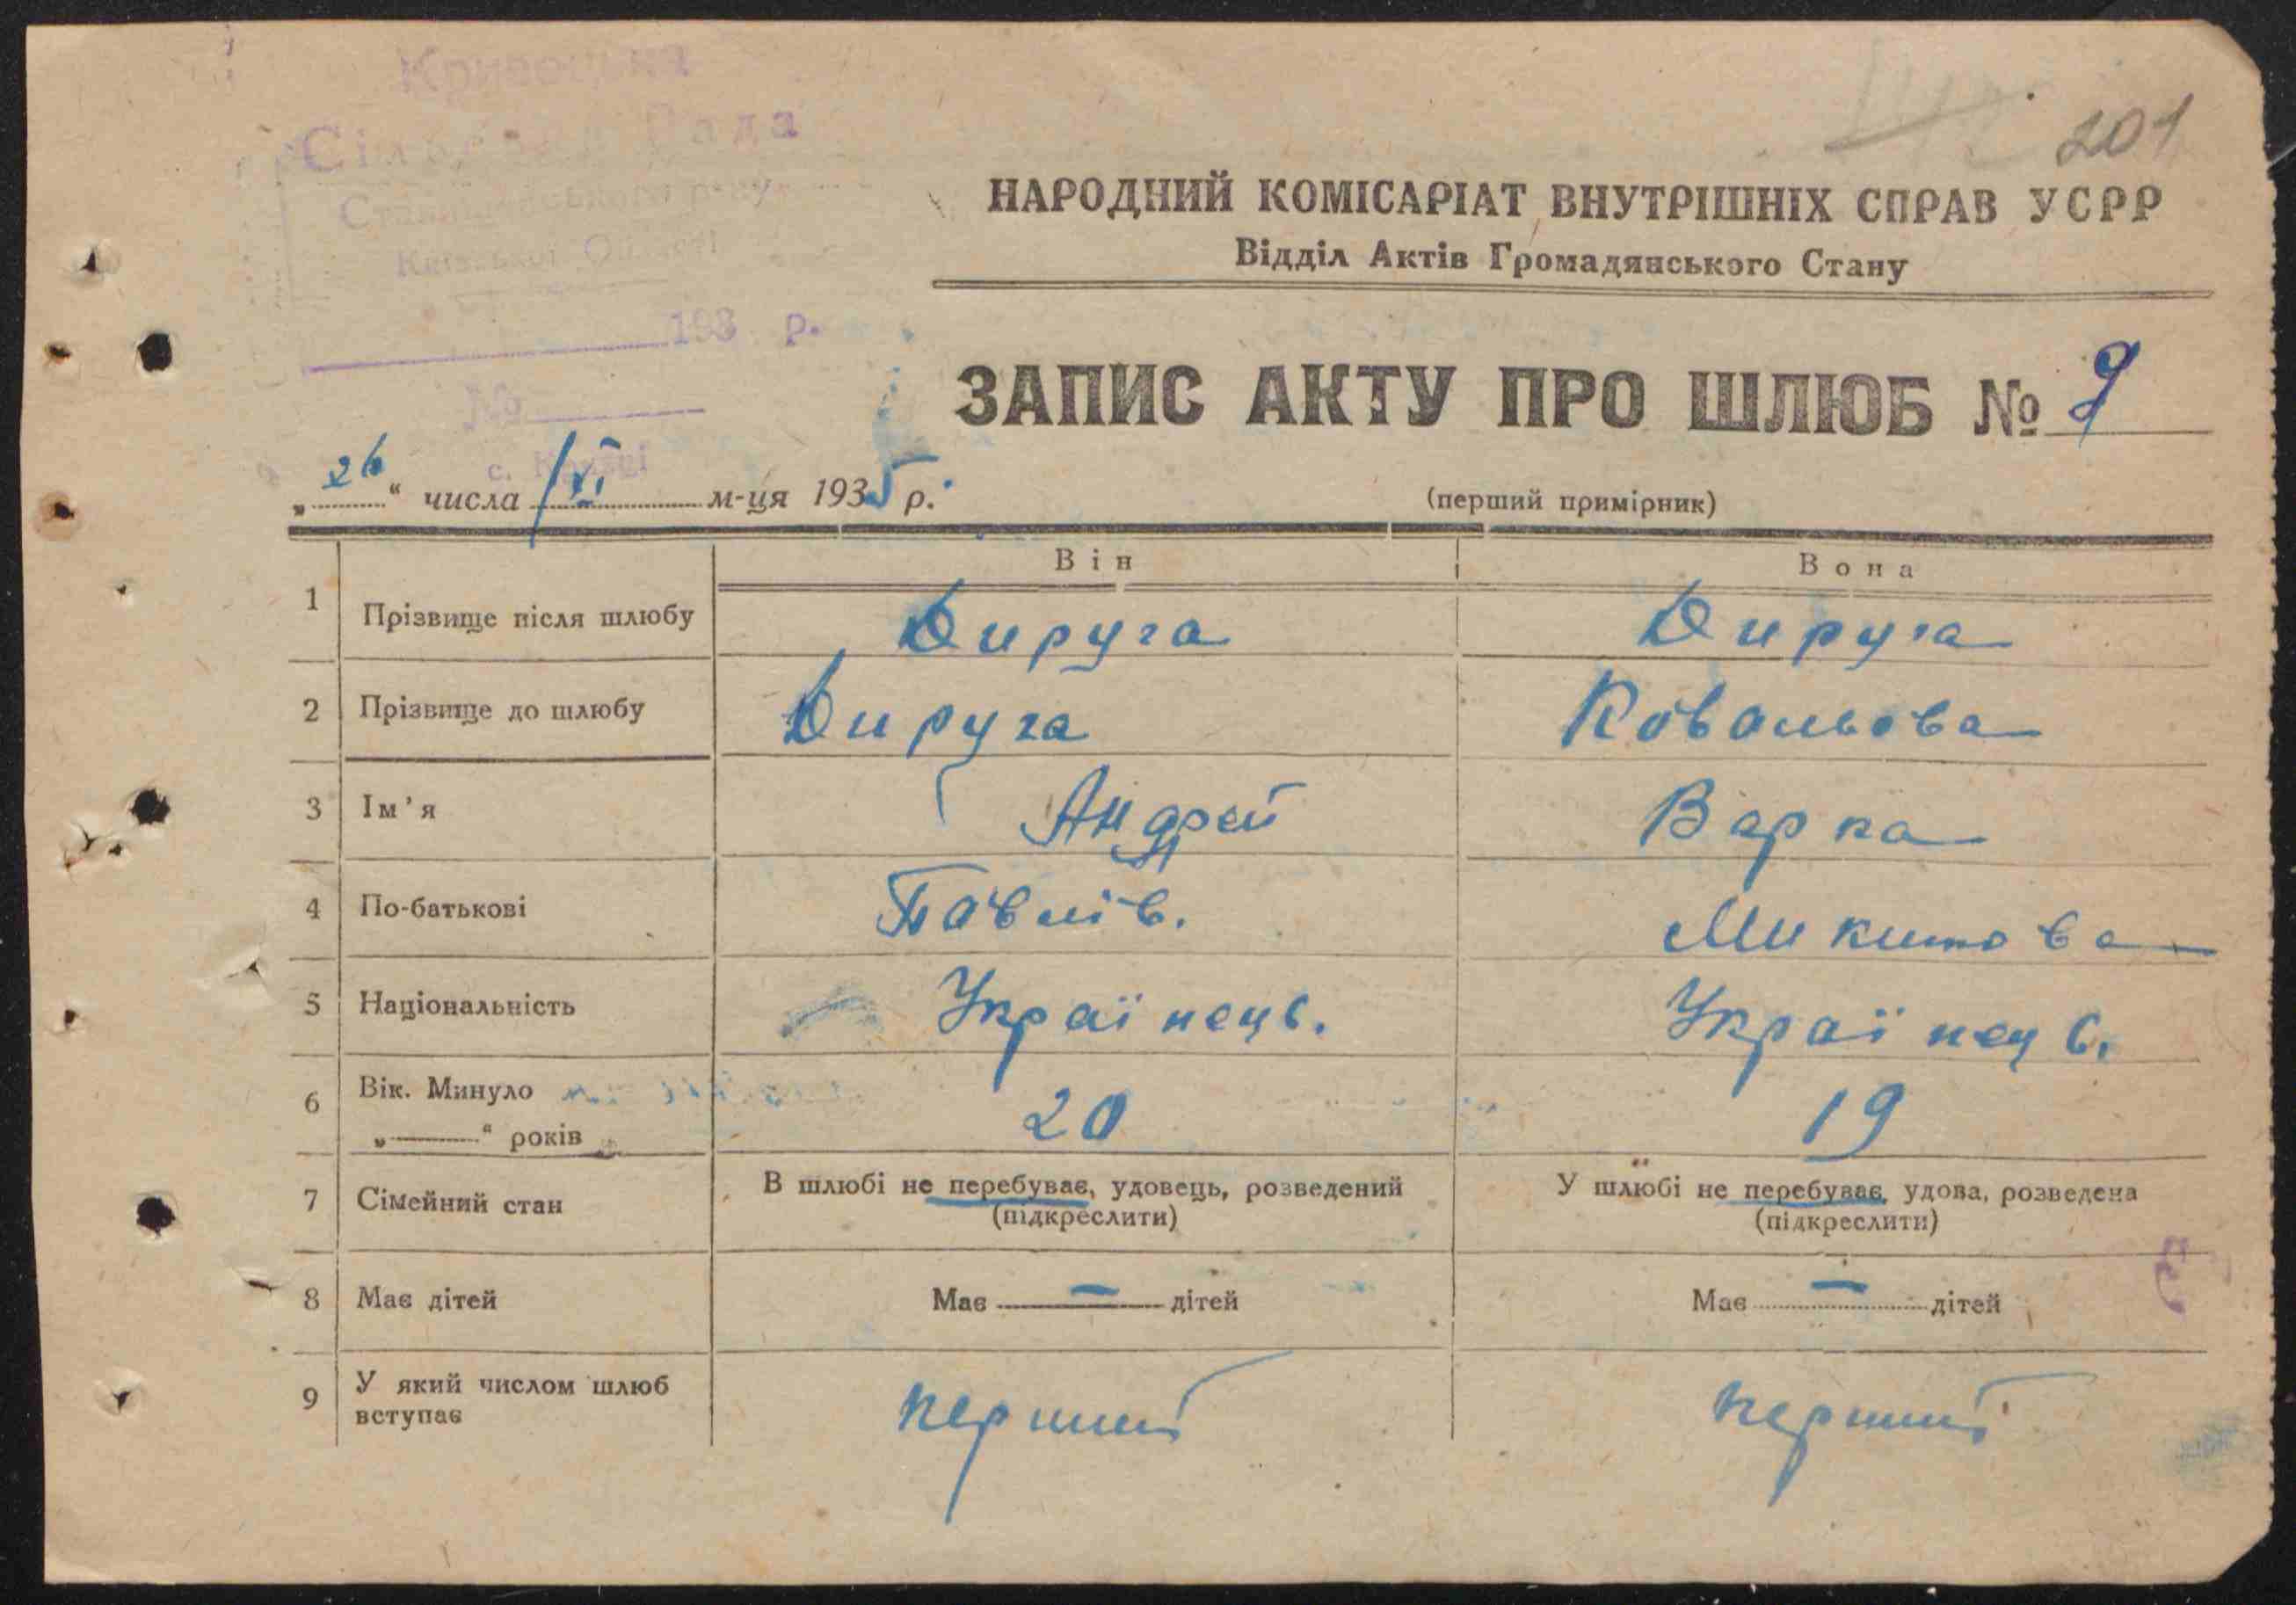 201
Сільська Рада
Київської Області
193 р.
№
НАРОДНИЙ КОМІСАРІАТ ВНУТРІШНІХ СПРАВ УСРР
Відділ Актів Громадянського Стану
ЗАПИС АКТУ ПРО ШЛЮБ № 9
„26“ числа VI м-ця 1935 р.
(перший примірник)
Він Вона
1 Прізвище після шлюбу Дируга Дируга
2 Прізвище до шлюбу Дируга Ковальова
3 Ім'я Андрей Варка
4 По-батькові Павлів. Микитова
5 Національність Українець. Українець.
6 Вік. Минуло „——“ років 20 19
7 Сімейний стан В шлюбі не перебуває, удовець, розведений У шлюбі не перебуває, удова, розведена
(підкреслити) (підкреслити)
8 Має дітей Має — дітей Має — дітей
9 У який числом шлюб вступає перший перший